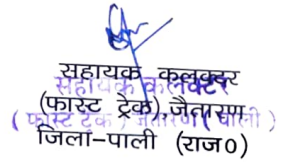 सहायक कलक्टर
सहायक कलक्टर
(फास्ट ट्रेक),जैतारण
( फास्ट ट्रेक ) जैतारण ( पाली )
जिला-पाली (राज०)